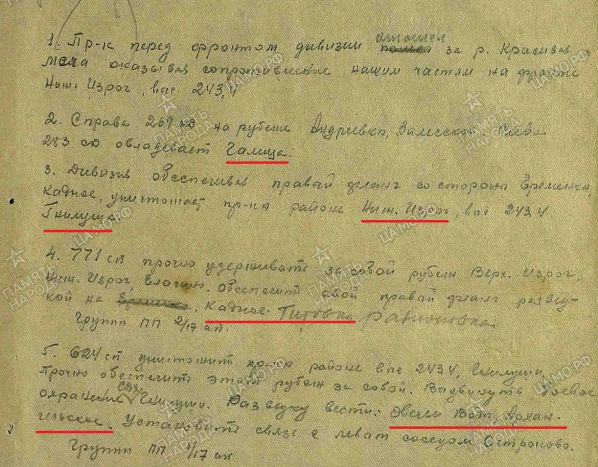 1. Пр-к перед фронтом дивизии отошел за р. Красивая
Меча оказывая сопротивление нашим частям на фронте
Ниж. Изрог, выс. 243,4
2. Справа 269 сд на рубеже Андреевка, Залесское,
283 сд овладевает Галица.
3. Дивизия обеспечивая правый фланг со стороны Еременка,
Кадное, уничтожает пр-ка районе Ниж. Изрог, выс 243.4
Гнилуша
4. 771 сп прочно удерживать за собой рубеж Верх. Изрог,
Ниж. Изрог, обеспечить свой правый фланг развед-
кой на Кадное. Титовка
Группа ПП 2/17 ап.
5. 624 сп уничтожить пр-ка районе выс 243.4, Гнилуша,
Прочно обеспечить этот рубеж за собой. Выдвинуть боевое
охранение Гнилуши. Разведку вести: Овечьи Воды, Архан-
гельское. Установить связь с левым соседом Остроново.
Группа ПП 1/17 ап
ПАМЯТЬ НАРОДА
ЦАМО.РФ